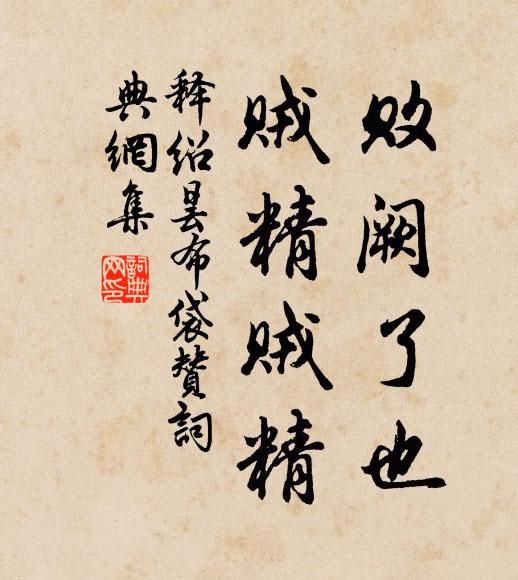 败阙了也
贼精贼精
释绍昙布袋赞詞
典網集
詞典網印